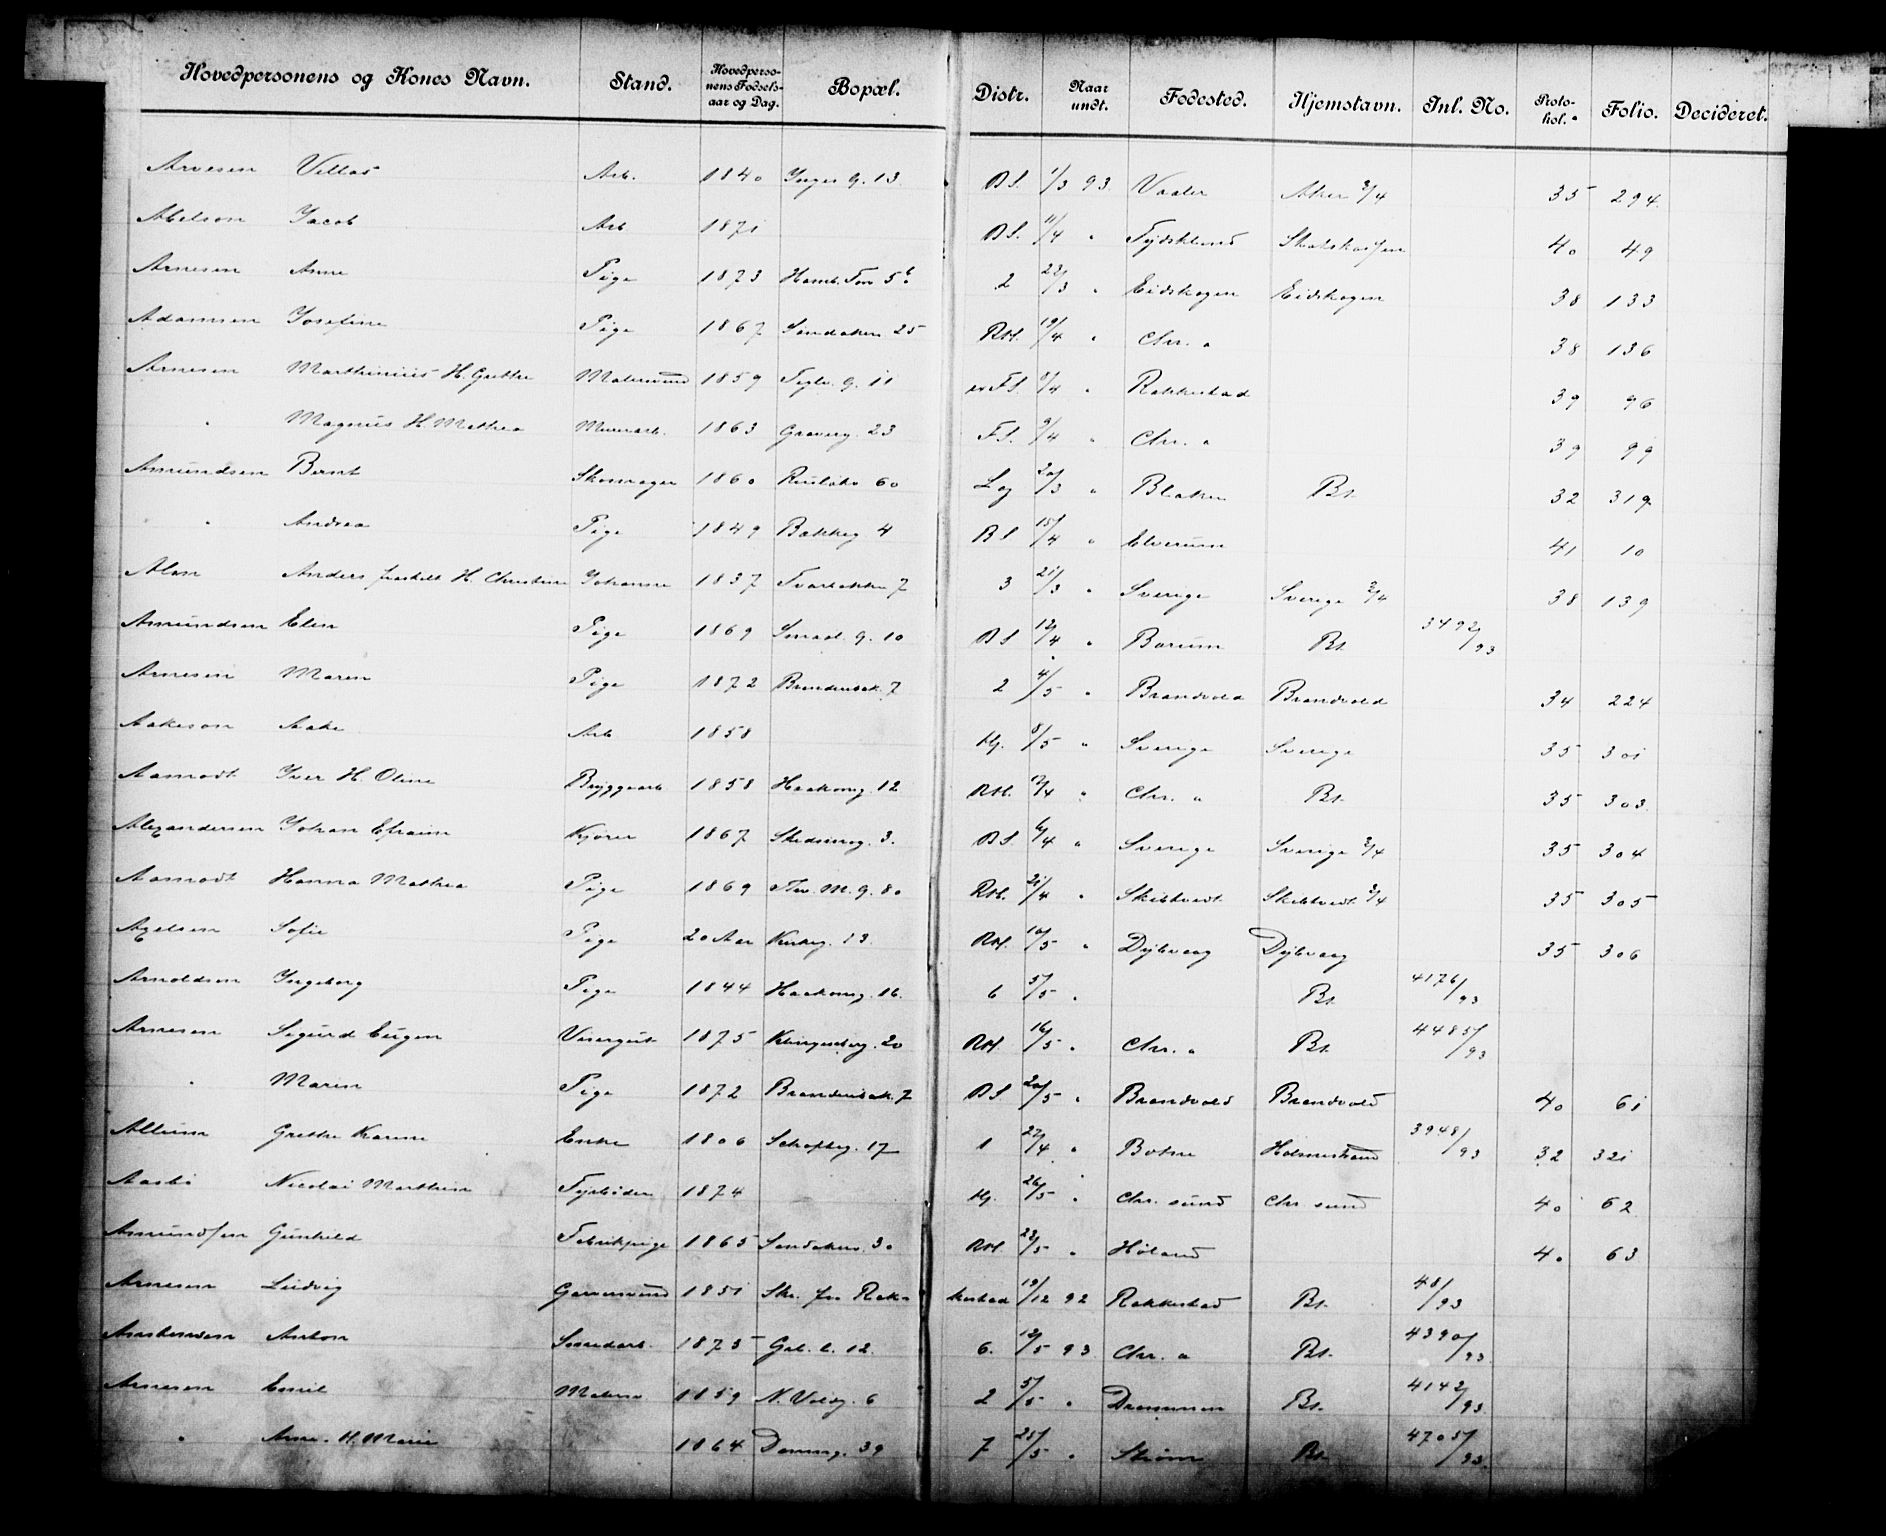 Hovedpersonens og Kones Navn. Stand. Hovedpersonens Fødselsaar og Dag. Bopæl. Distr. Naar undt. Fødested. Hjemstavn. Inl. No. Protokol. Folio. Decideret.
Arvesen Arb. 1840 g. 13 B S. 1/3 93 Vaaler Aker 3/4 35 294
Abelson Jacob Arb 1871 B S. 11/4 " 40 49
Arnesen Anne Pige 1873 2 22/3 " Eidskogen Eidskogen 38 133
Adamsen Josefine Pige 1867 Sandakerv. 25 RH. 19/4 " Chr. a 38 136
Arnesen Marthinius H. Grethe Malersvend 1859 Teglv. g. 11 F S. 8/4 " Rakkestad 39 96
" Magnus H. Mathea Murerarb. 1863 Graverg. 23 F S. 9/4 " Chr. a 39 99
Amundsen Bernt Skomager 1860 60 Log 20/3 " Blaker Bt. 32 319
" Andrea Pige 1849 Bakkeg 4 B S 15/4 " Elverum 41 10
Anders fraskilt H. Christine 1837 7 3 21/3 " Sverige Sverige 3/4 38 139
Amundsen Elen Pige 1869 g. 10 B S 12/4 " Bærum Bt. 3492/93
Arnesen Maren Pige 1872 7 2 4/5 " Brandvold Brandvold 34 224
Aakeson Aake Arb 1858 Hj. 8/5 " Sverige Sverige 35 301
Aamodt Iver H. Oline Bryggearb 1858 Haakonsg. 12 RH. " Chr. a Bt. 35 303
Alexandersen Johan Efraim Kjører 1867 Skedsmog. 3. B S. 6/4 " Sverige Sverige 3/4 35 304
Aamodt Hanna Mathea Pige 1869 Thv. M. g. 80 RH. 21/4 " Skibtvedt Skibtvedt 3/4 35 305
Axelsen Sofie Pige 20 Aar Kirkeg. 13 RH. 10/5 " Dybvaag Dybvaag 35 306
Arnoldsen Ingeborg Pige 1844 Haakonsg. 16. 6 5/5 " Bt. 4176/93
Arnesen Sigurd Eugen Visergut 1875 Klingenbg. 20 RH. 16/5 " Chr. a Bt. 4485/93
" Maren Pige 1872 7 B S. 20/5 " Brandvold Brandvold 40 61
Allum Grethe Karine Enke 1806 17 1 22/4 " Botne Holmestrand 3948/93 32 321
Aasbø Nicolai Marthin Fyrbøder 1874 Hj. 26/5 " Chr. sund Chr. sund 40 62
Amundsen Gunhild Fabrikpige 1865 Sandakerv. 30 RH 23/5 " Høland 40 63
Arnesen Ludvig Garversvend 1851 Skr. fra Rakkestad 19/12 92 Rakkestad Bt. 48/93
Anton Smedarb. 1873 12. 6. 12/5 93 Chr. a Bt. 4390/93
Arnesen Emil Maler 1859 N. Voldg. 6 2 5/5 " Drammen Bt. 4142/93
" Arne. H. Marie 1864 39 7 25/5 " Strøm Bt. 4705/93